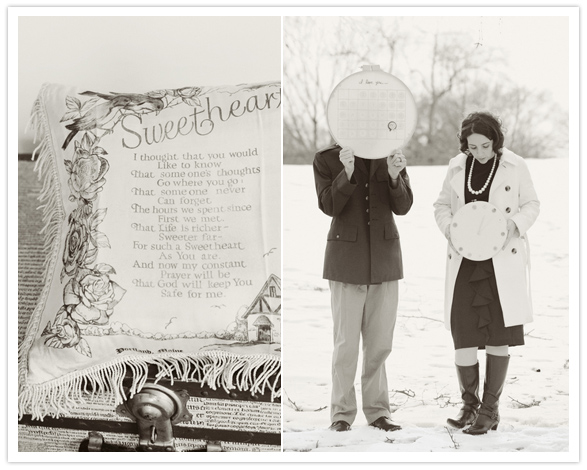 Sweetheart
I thought that you would
Like to know
That someone's thoughts
Go where you go;
That some one never
Can forget
The hours we spent since
First we met.
That Life is richer-
Sweeter far-
For such a Sweetheart
As You are.
And now my constant
Prayer will be
That God will keep You
Safe for me.
Portland, Maine
I love you...